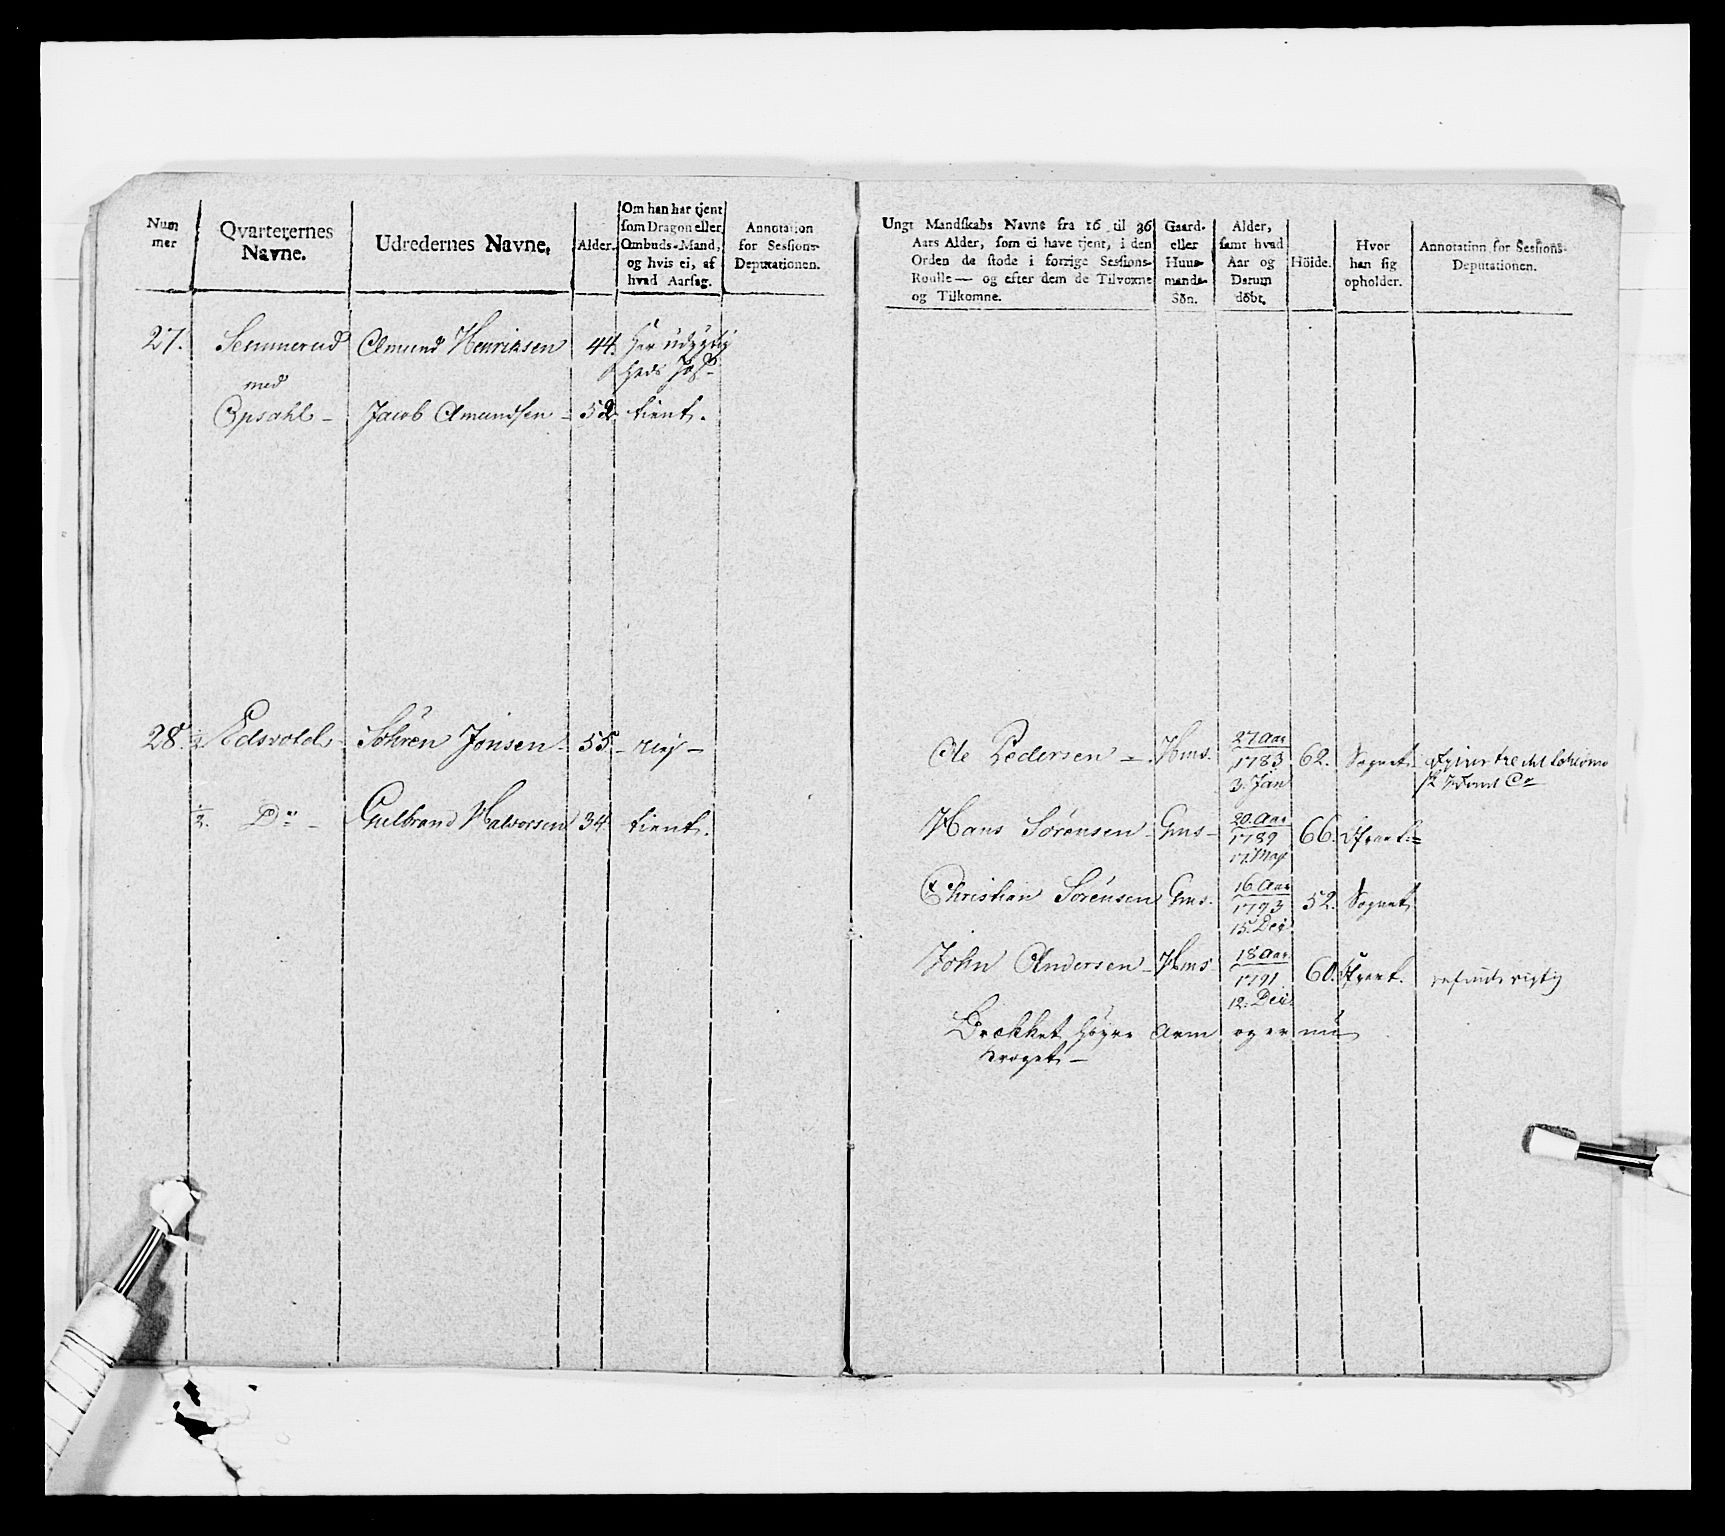 Num
mer
Qvarterernes
Navne.
Udredernes Navne.
Alder.
Om han har tjent
som Dragon eller
Ombuds-Mand,
og hvis ei, af
hvad Aarsag.
Annotation
for Sessions-
Deputationen.
27. Semmerud Amund Henriksen 44. For udygtig
med heds
Opsahl - Jacob Amundsen - 52. tient.
28. ½ Edsvold - Söhren Jonsen - 55. - Nej -
½. Do - Gulbrand Halvorsen 34. tient.
Ungt Mandskabs Navne fra 16 til 36
Aars Alder, som ei have tjent, i den
Orden de stode i forrige Sessions-
Roulle — og efter dem de Tilvoxne
og Tilkomne.
Gaard-
eller
Huus-
mands-
Sön.
Alder,
samt hvad
Aar og
Datum
döbt.
Höide.
Hvor
han sig
opholder.
Annotation for Sessions-
Deputationen.
Ole Pedersen - Hms. 27 Aar 62. Sognet.
1783
3. Jan
Hans Sörensen - Gms - 20. Aar 66.
1789
17. May
Christian Sörensen Gms. 16 Aar 52. Sognet
1793
15. Dec.
John Andersen - Hms 18 Aar 60. befinds rigtig
1791
12. Dec.
Brækket höyre Arm og er nu
kroget -